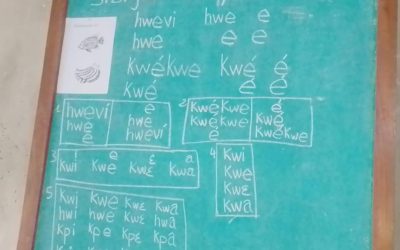 hwevi hwe e
hwe e e
kwékwe kwé é
kwé é é
1 hweví e
hwe hwe
e hweví
2 kwékwe é
kwé kwe kwé
é kwékwe
3 i e ɛ a
kwi kwe kwɛ kwa
4 kwi
kwe
kwɛ
kwa
5 kwi kwe kwɛ kwa
hwi hwe hwɛ hwa
kpi kpe kpɛ kpa